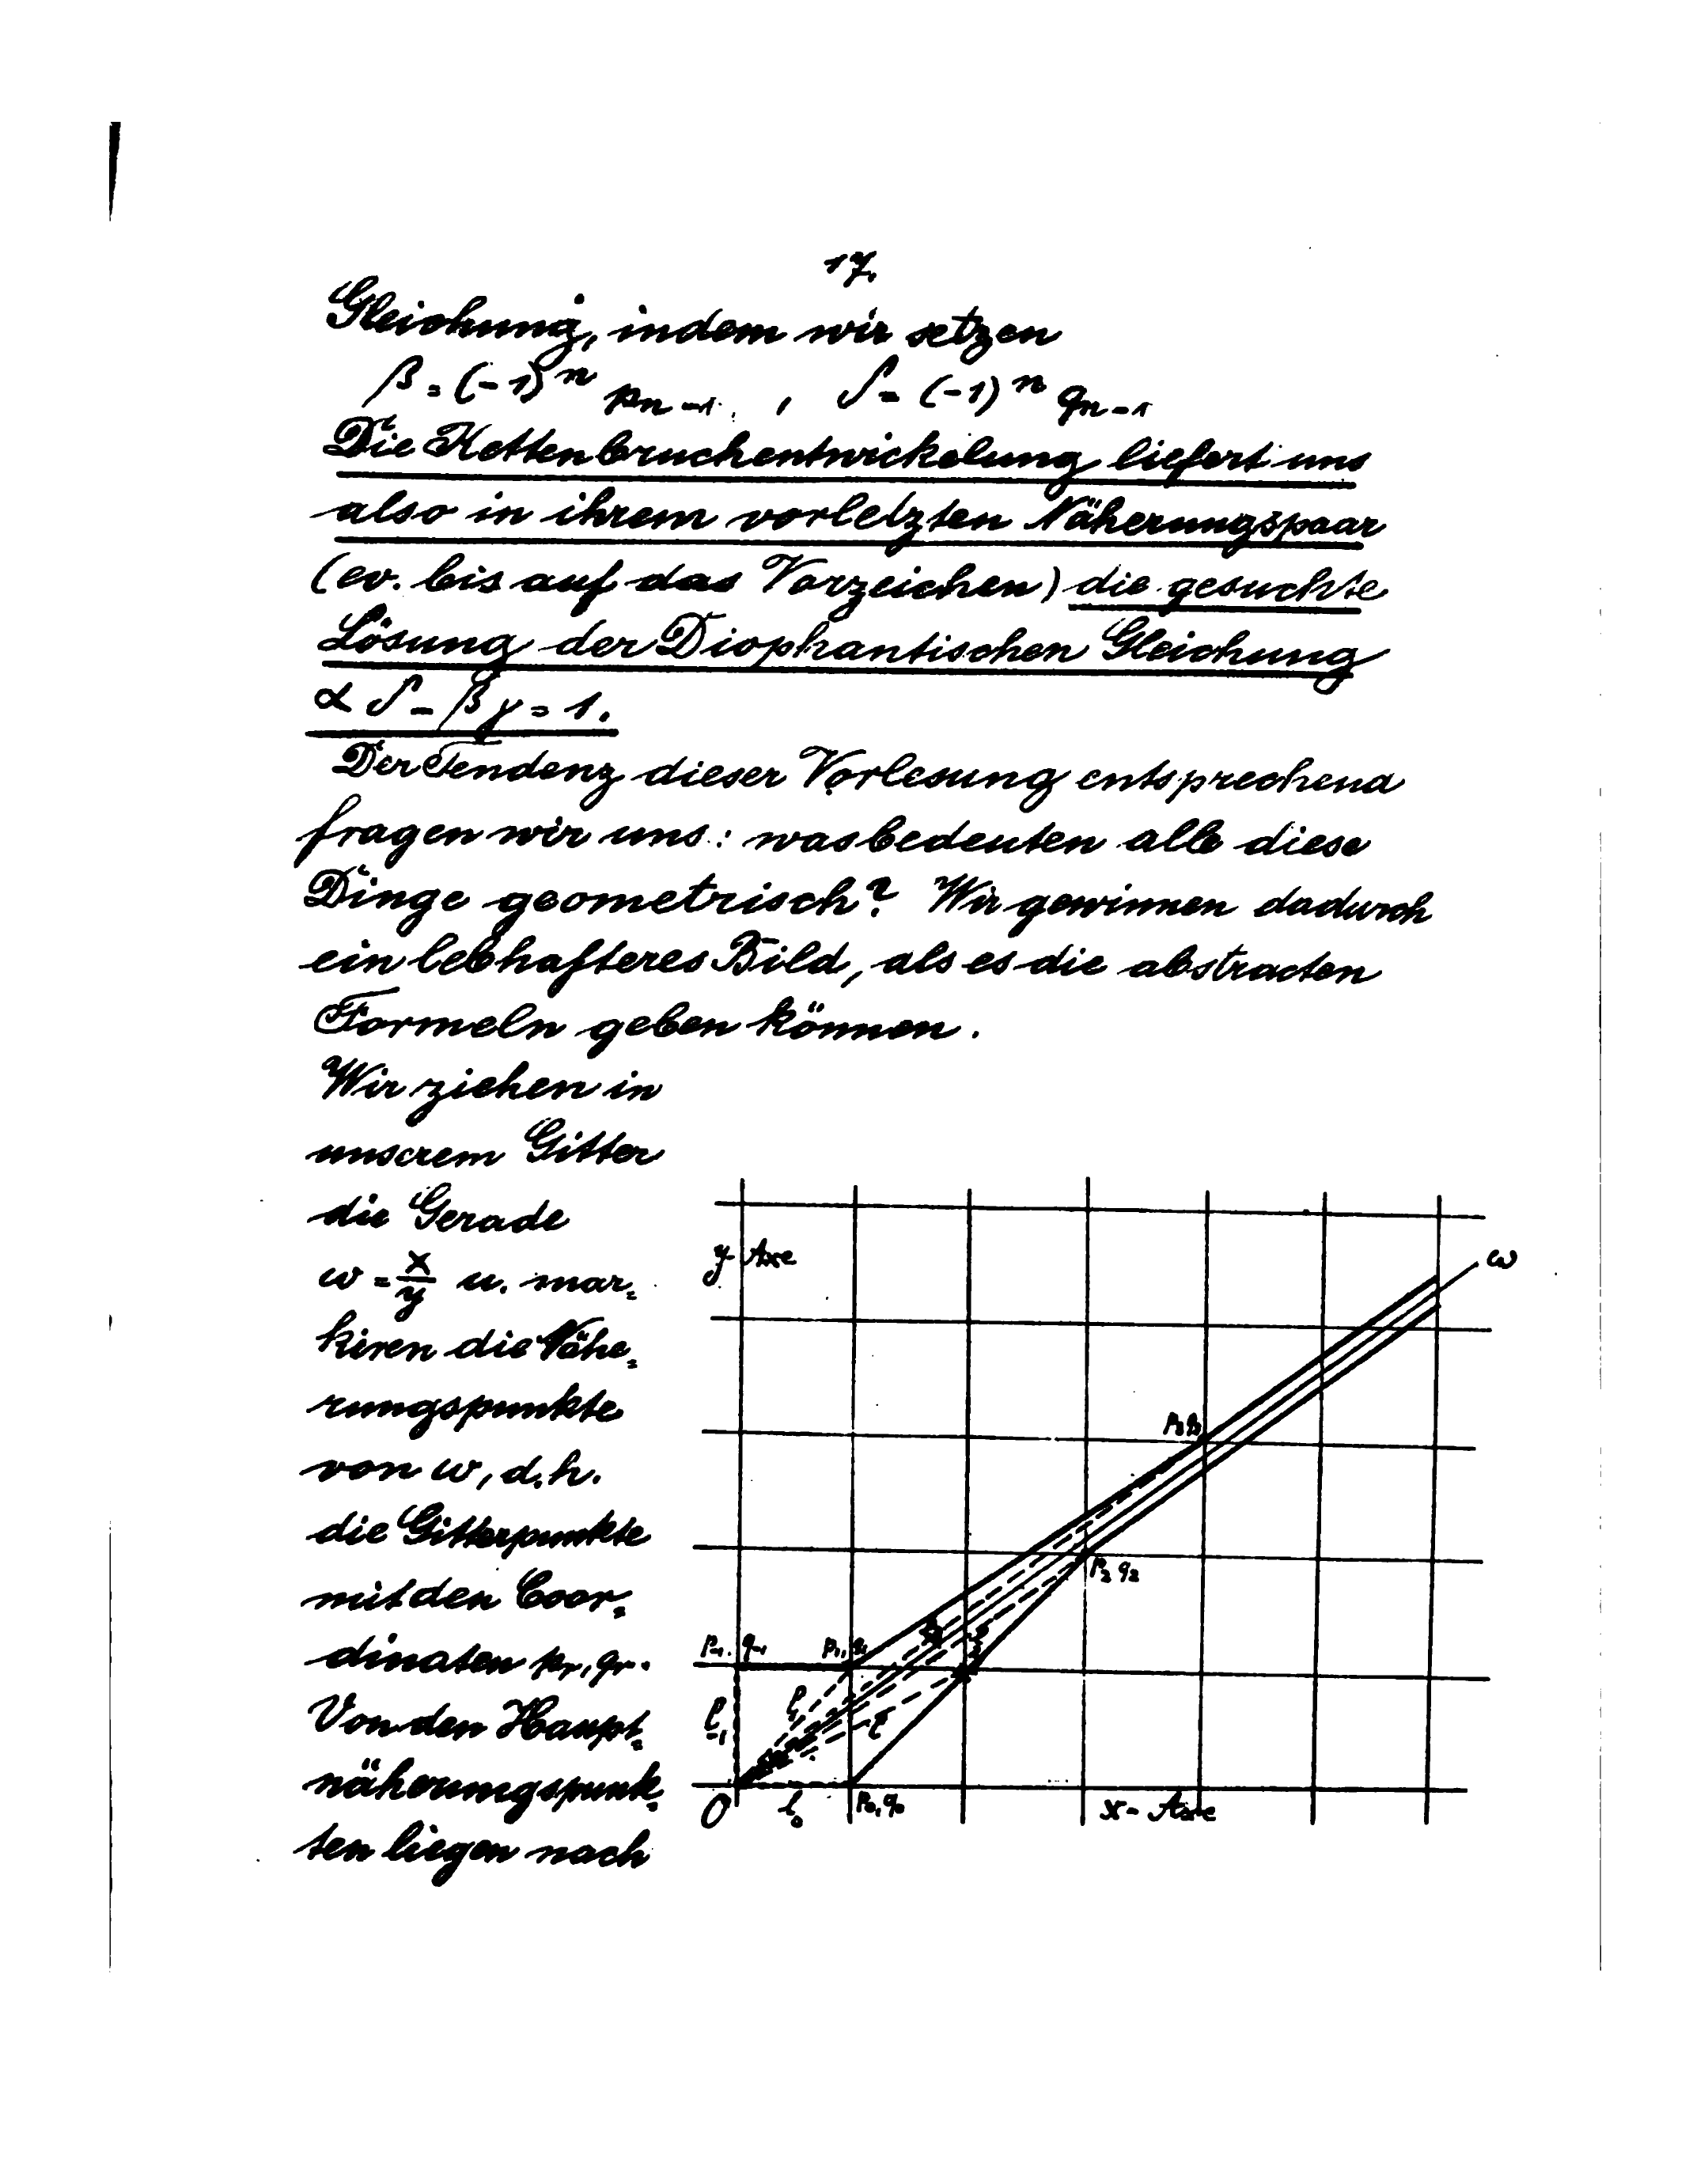 17.
Gleichung, indem wir setzen
β = (-1)ⁿ pₙ₋₁ , δ = (-1)ⁿ qₙ₋₁
Die Kettenbruchentwickelung liefert uns
also in ihrem vorletzten Näherungspaar
(ev. bis auf das Vorzeichen) die gesuchte
Lösung der Diophantischen Gleichung
αδ - βγ = 1.
Der Tendenz dieser Vorlesung entsprechend
fragen wir uns: was bedeuten alle diese
Dinge geometrisch? Wir gewinnen dadurch
ein lebhafteres Bild, als es die abstracten
Formeln geben können.
Wir ziehen in
unserem Gitter
die Gerade
ω = x/y u. mar=
kiren die Nähe=
rungspunkte
von ω, d.h.
die Gitterpunkte
mit den Coor=
dinaten pᵣ, qᵣ.
Von den Haupt=
näherungspunk=
ten liegen nach
y Axe
ω
p₃ q₃
p₂ q₂
p₋₁ q₋₁
p₁, q₁
O
p₀, q₀
x - Axe